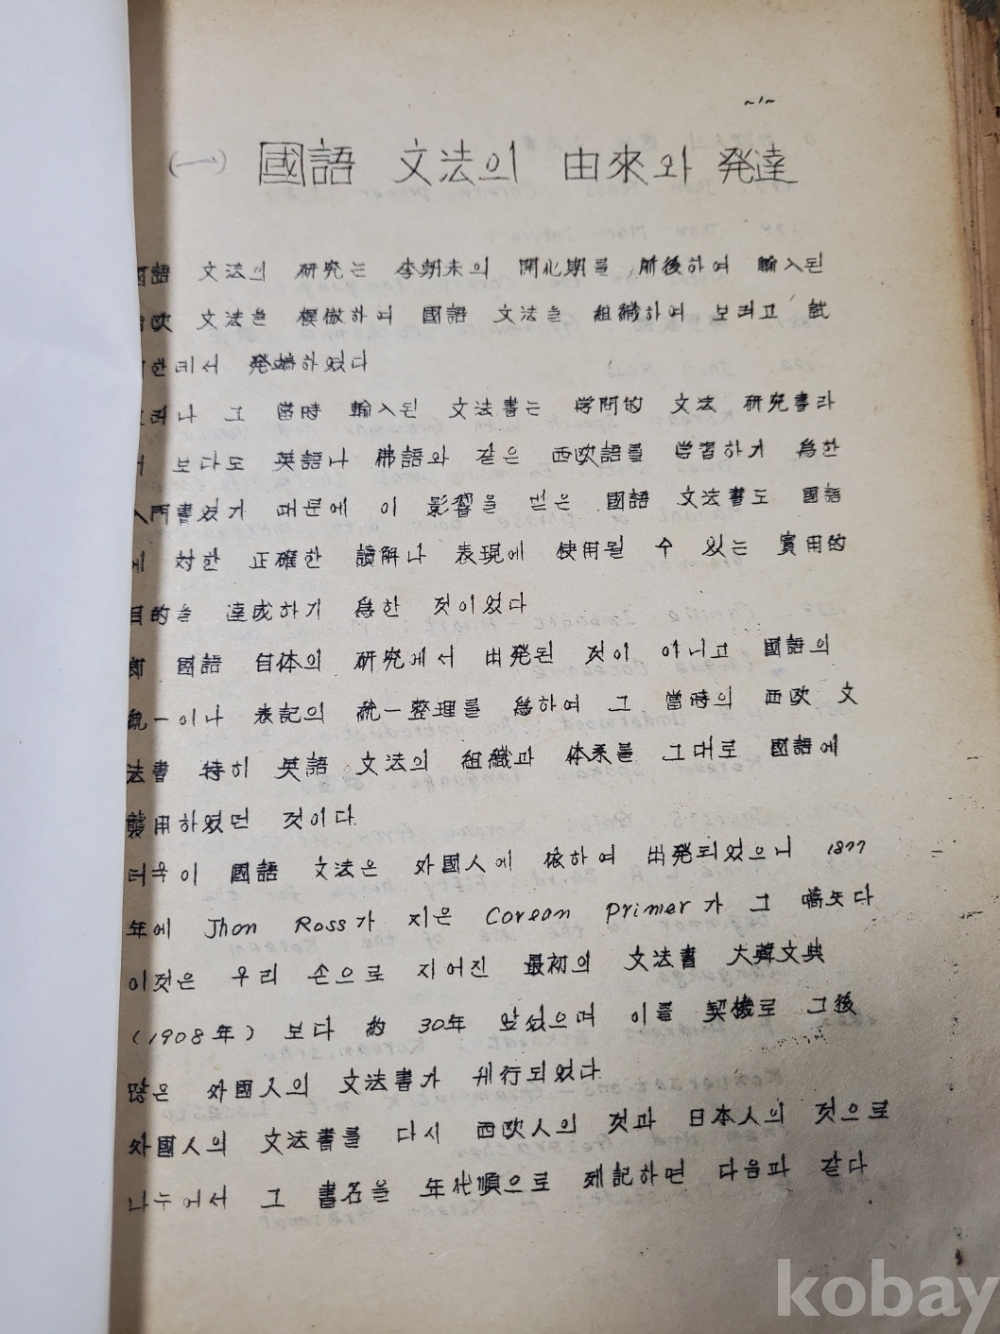 ~1~
(一) 國語 文法의 由來와 発達
國語 文法의 研究는 李朝末의 開化期를 前後하여 輸入된
西欧 文法을 模倣하여 國語 文法을 組織하여 보려고 試
한데서 発端하였다
그러나 그 當時 輸入된 文法書는 学問的 文法 研究書라
보다도 英語나 佛語와 같은 西欧語를 学習하기 爲한
入門書였기 때문에 이 影響을 받은 國語 文法書도 國語
에 対한 正確한 讀解나 表現에 使用될 수 있는 實用的
目的을 達成하기 爲한 것이었다
卽 國語 自体의 研究에서 出発된 것이 아니고 國語의
統一이나 表記의 統一整理를 爲하여 그 當時의 西欧 文
法書 特히 英語 文法의 組織과 体系를 그대로 國語에
襲用하였던 것이다
더욱이 國語 文法은 外國人에 依하여 出発되었으니 1877
年에 Jhon Ross가 지은 Corean Primer가 그 嚆矢다
이것은 우리 손으로 지어진 最初의 文法書 大韓文典
(1908年) 보다 約 30年 앞섰으며 이를 契機로 그後
많은 外國人의 文法書가 刊行되었다
外國人의 文法書를 다시 西欧人의 것과 日本人의 것으로
나누어서 그 書名을 年代順으로 列記하면 다음과 같다
kobay